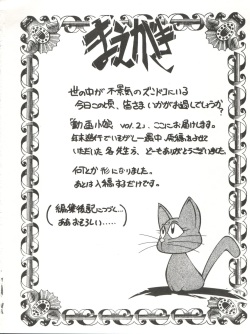 まえがき
世の中が不景気のズンドコにいる
今日この頃、皆さまいかがお過しでしょうか?
動画小娘 vol.2、ここにお届けします。
年末進行でいそがしい最中、原稿をよせて
いただいた各先生方、ど〜もありがとうございました。
何とか形になりました。
あとは入稿するだけです。
(編集後記につづく…
ああおそろしい……)